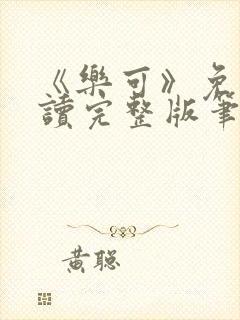 《樂可》免
讀完整版筆
黃聪